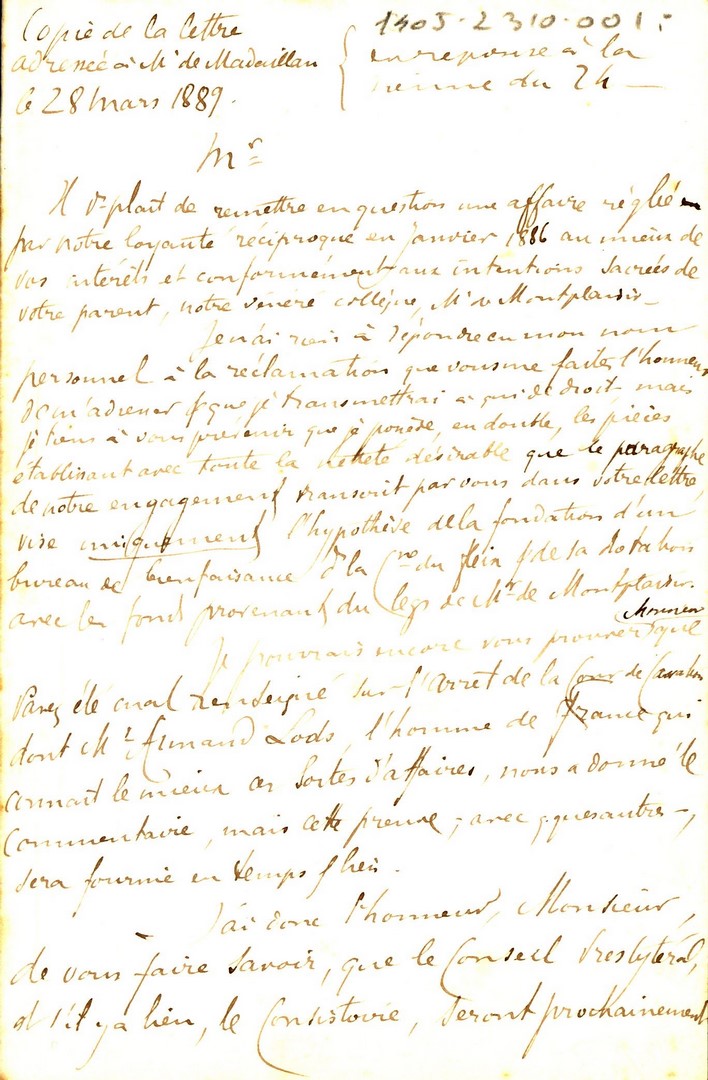 Copie de la lettre
adressée à Mr de Madaillan
le 28 mars 1889.
1405-2310-001-
en réponse à la
sienne du 24 —
Mr
Il vs plait de remettre en question une affaire réglée
par notre loyauté réciproque en Janvier 1886 au mieux de
vos intérêts et conformément aux intentions sacrées de
votre parent, notre vénéré collègue, Mr de Montplaisir —
Je n'ai rien à répondre en mon nom
personnel à la réclamation que vous me faites l'honneur
de m'adresser & que je transmettrai à qui de droit mais
je tiens à vous prévenir que je possède, en double, les pièces
établissant avec toute la netteté désirable que le paragraphe
de notre engagement transcrit par vous dans votre lettre,
vise uniquement l'hypothèse de la fondation d'un
bureau de bienfaisance à la Cne du Fleix & de sa dotation
avec les fonds provenant du legs de Mr de Montplaisir.
Je pourrais encore vous prouver Monsieur que
vs avez été mal renseigné sur l'arrêt de la Cour de Cassation
dont Mr Armand Lods, l'homme de France qui
connait le mieux ces sortes d'affaires, nous a donné le
commentaire, mais cette preuve, avec qques autres —,
sera fournie en temps & lieu.
J'ai donc l'honneur, Monsieur,
de vous faire savoir, que le Conseil Presbytéral,
et s'il y a lieu, le Consistoire, seront prochainement